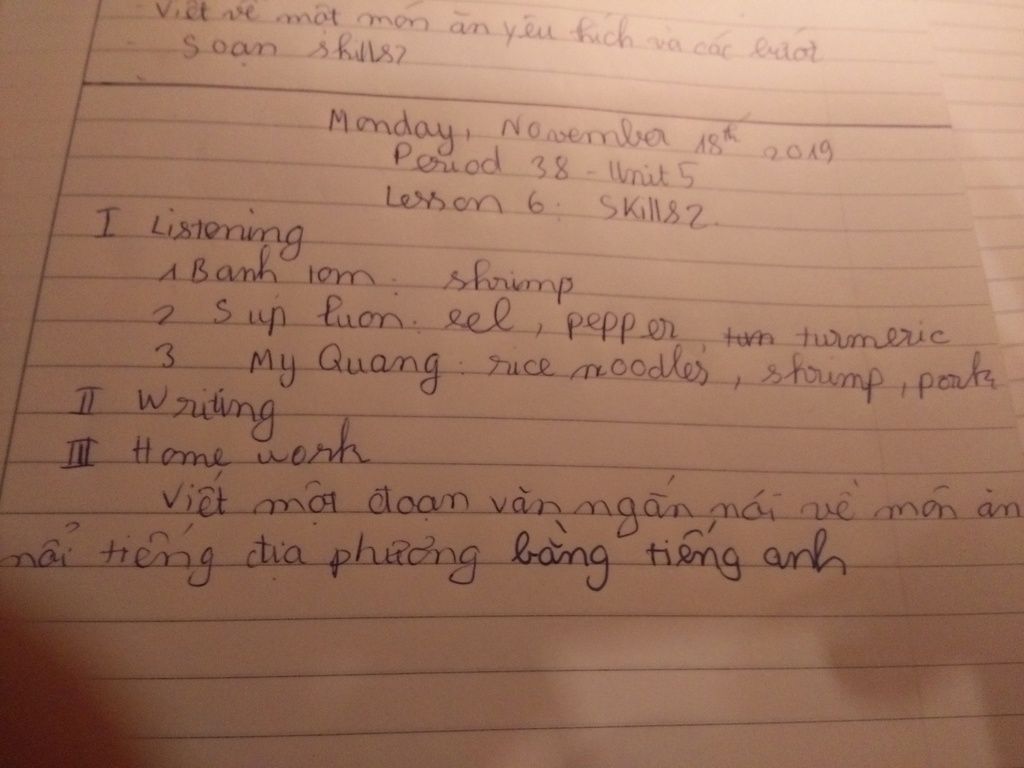 Viết về một món ăn yêu thích và các bước
- Soạn skills2
Monday, November 18th 2019
Period 38 - Unit 5
Lesson 6: Skills2.
I Listening
1 Banh tom: shrimp
2 Sup luon: eel, pepper, tum turmeric
3 My Quang: rice noodles, shrimp, pork
II Writing
III Home work
Viết một đoạn văn ngắn nói về món ăn
nổi tiếng địa phương bằng tiếng anh